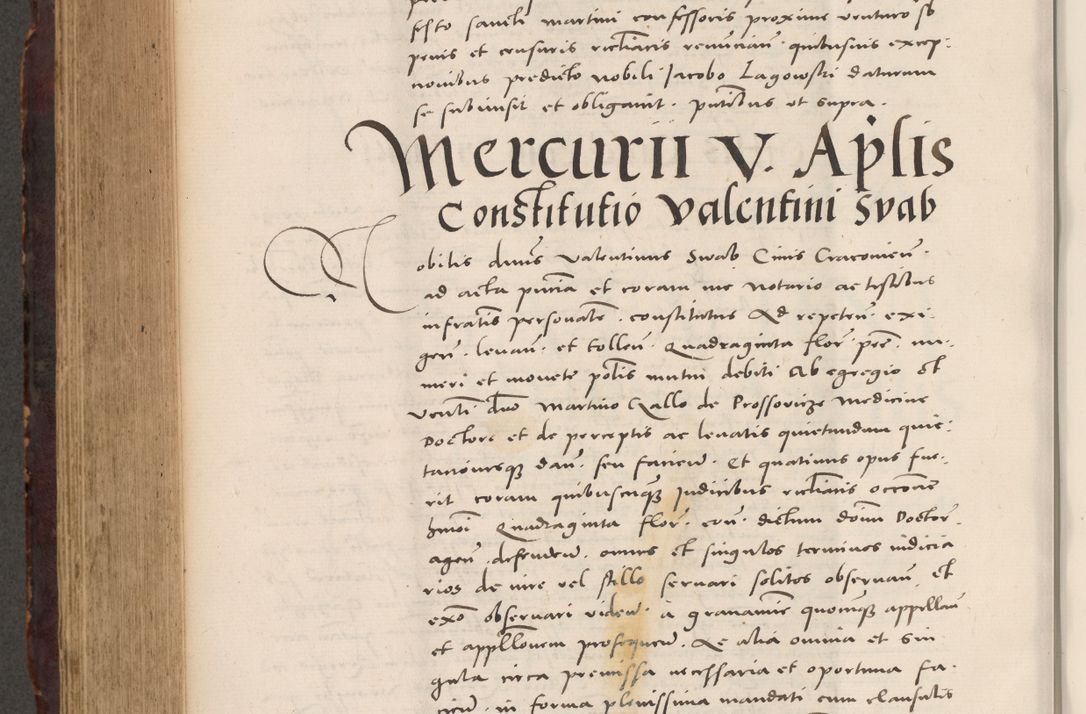 festo sancti martini confessoris proxime venturo sb
penis et censuris ecclīacis renūncian̄ quibusuis excep-
tionibus predicto nobili Jacobo Lagowski daturum
se submisit et obligauit. pn̄tibus ut supra.
Mercurii V. Ap̄lis
Constitutio Valentini Svab
Nobilis dn̄us valentinus Swab Ciuis Cracouien̄.
ad acta pn̄cia et coram me Notario ac testibus
infrattis personatr̄ constitutus Ad repeten̄ exi-
gen̄. leuan̄. et tollen̄. Quadraginta flor̄ pec̄. nu-
meri et monete polis mutui debiti Ab egregio et
venlī dn̄o Martino Gallo de Prossouicze Medicine
Doctore et de perceptis ac leuatis quietandum quie-
tacionesq dan̄. seu facien̄. Et quatinus opus fue-
rit coram quibuscunq Judicibus eccliacis occōne
hm̄oi Quadraginta flor̄. con̄. dictum dōm̄ Doctor̄.
agen̄. defenden̄. omnes et singulos terminos iudicia
rios de iure vel stillo seruari solitos obseruan̄ et
exō obseruari viden̄. à grauamīe quocunq appellan̄
et appllonem prosequen̄. Ac alia omnia et sin
gula circa premissa necessaria et oportuna fa-
cien̄. in forma plenissima mandati cum clausulis